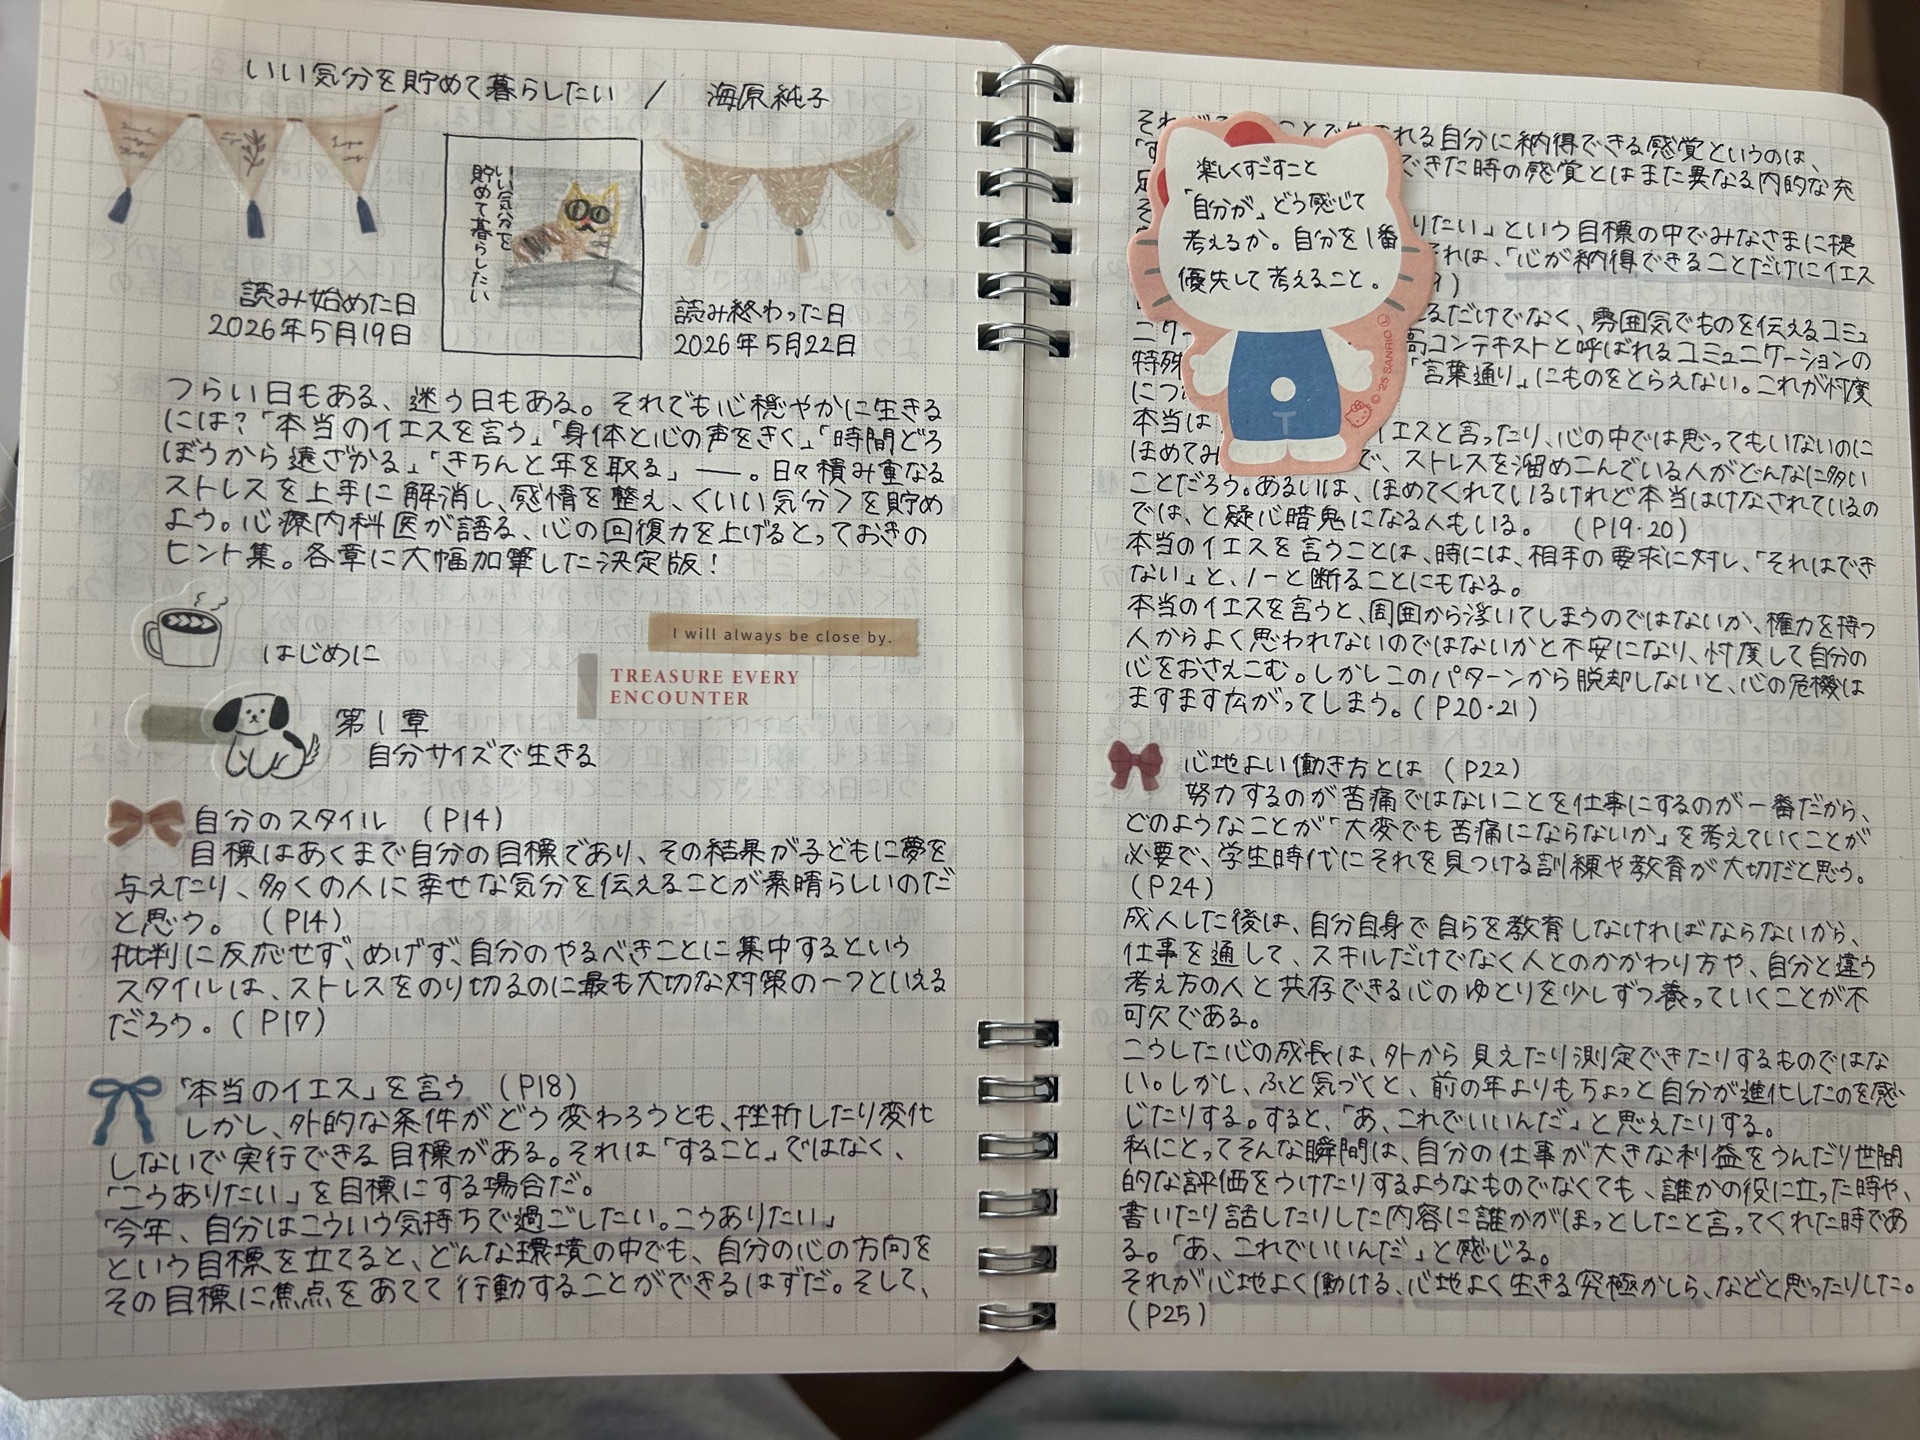 いい気分を貯めて暮らしたい / 海原純子
いい気分を
貯めて暮らしたい
読み始めた日
2026年5月19日
読み終わった日
2026年5月22日
つらい日もある、迷う日もある。それでも心穏やかに生きる
には?「本当のイエスを言う」「身体と心の声をきく」「時間どろ
ぼうから遠ざかる」「きちんと年を取る」──。日々積み重なる
ストレスを上手に解消し、感情を整え、〈いい気分〉を貯め
よう。心療内科医が語る、心の回復力を上げるとっておきの
ヒント集。各章に大幅加筆した決定版!
はじめに
I will always be close by.
TREASURE EVERY
ENCOUNTER
第1章
自分サイズで生きる
自分のスタイル (P14)
目標はあくまで自分の目標であり、その結果が子どもに夢を
与えたり、多くの人に幸せな気分を伝えることが素晴らしいのだ
と思う。 (P14)
批判に反応せず、めげず、自分のやるべきことに集中するという
スタイルは、ストレスをのり切るのに最も大切な対策の一つといえる
だろう。(P17)
「本当のイエス」を言う (P18)
しかし、外的な条件がどう変わろうとも、挫折したり変化
しないで実行できる目標がある。それは「すること」ではなく、
「こうありたい」を目標にする場合だ。
「今年、自分はこういう気持ちで過ごしたい。こうありたい」
という目標を立てると、どんな環境の中でも、自分の心の方向を
その目標に焦点をあてて行動することができるはずだ。そして、
れる自分に納得できる感覚というのは、
できた時の感覚とはまた異なる内的な充
りたい」という目標の中でみなさまに提
れは、「心が納得できることだけにイエス
るだけでなく、雰囲気でものを伝えるコミュ
ニケー 高コンテキストと呼ばれるコミュニケーションの
特殊 「言葉通り」にものをとらえない。これが忖度
につ
本当は イエスと言ったり、心の中では思ってもいないのに
ほめてみ で、ストレスを溜めこんでいる人がどんなに多い
ことだろう。あるいは、ほめてくれているけれど本当はけなされているの
では、と疑心暗鬼になる人もいる。 (P19・20)
楽しくすごすこと
「自分が」どう感じて
考えるか。自分を1番
優先して考えること。
©'25 SANRIO
本当のイエスを言うことは、時には、相手の要求に対し、「それはでき
ない」と、ノーと断ることにもなる。
本当のイエスを言うと、周囲から浮いてしまうのではないか、権力を持つ
人からよく思われないのではないかと不安になり、忖度して自分の
心をおさえこむ。しかしこのパターンから脱却しないと、心の危機は
ますます広がってしまう。(P20・21)
心地よい働き方とは (P22)
努力するのが苦痛ではないことを仕事にするのが一番だから、
どのようなことが「大変でも苦痛にならないか」を考えていくことが
必要で、学生時代にそれを見つける訓練や教育が大切だと思う。
(P24)
成人した後は、自分自身で自らを教育しなければならないから、
仕事を通して、スキルだけでなく人とのかかわり方や、自分と違う
考え方の人と共存できる心のゆとりを少しずつ養っていくことが不
可欠である。
こうした心の成長は、外から見えたり測定できたりするものではな
い。しかし、ふと気づくと、前の年よりもちょっと自分が進化したのを感
じたりする。すると、「あ、これでいいんだ」と思えたりする。
私にとってそんな瞬間は、自分の仕事が大きな利益をうんだり世間
的な評価をうけたりするようなものでなくても、誰かの役に立った時や、
書いたり話したりした内容に誰かがほっとしたと言ってくれた時であ
る。「あ、これでいいんだ」と感じる。
それが心地よく働ける、心地よく生きる究極かしら、などと思ったりした。
(P25)